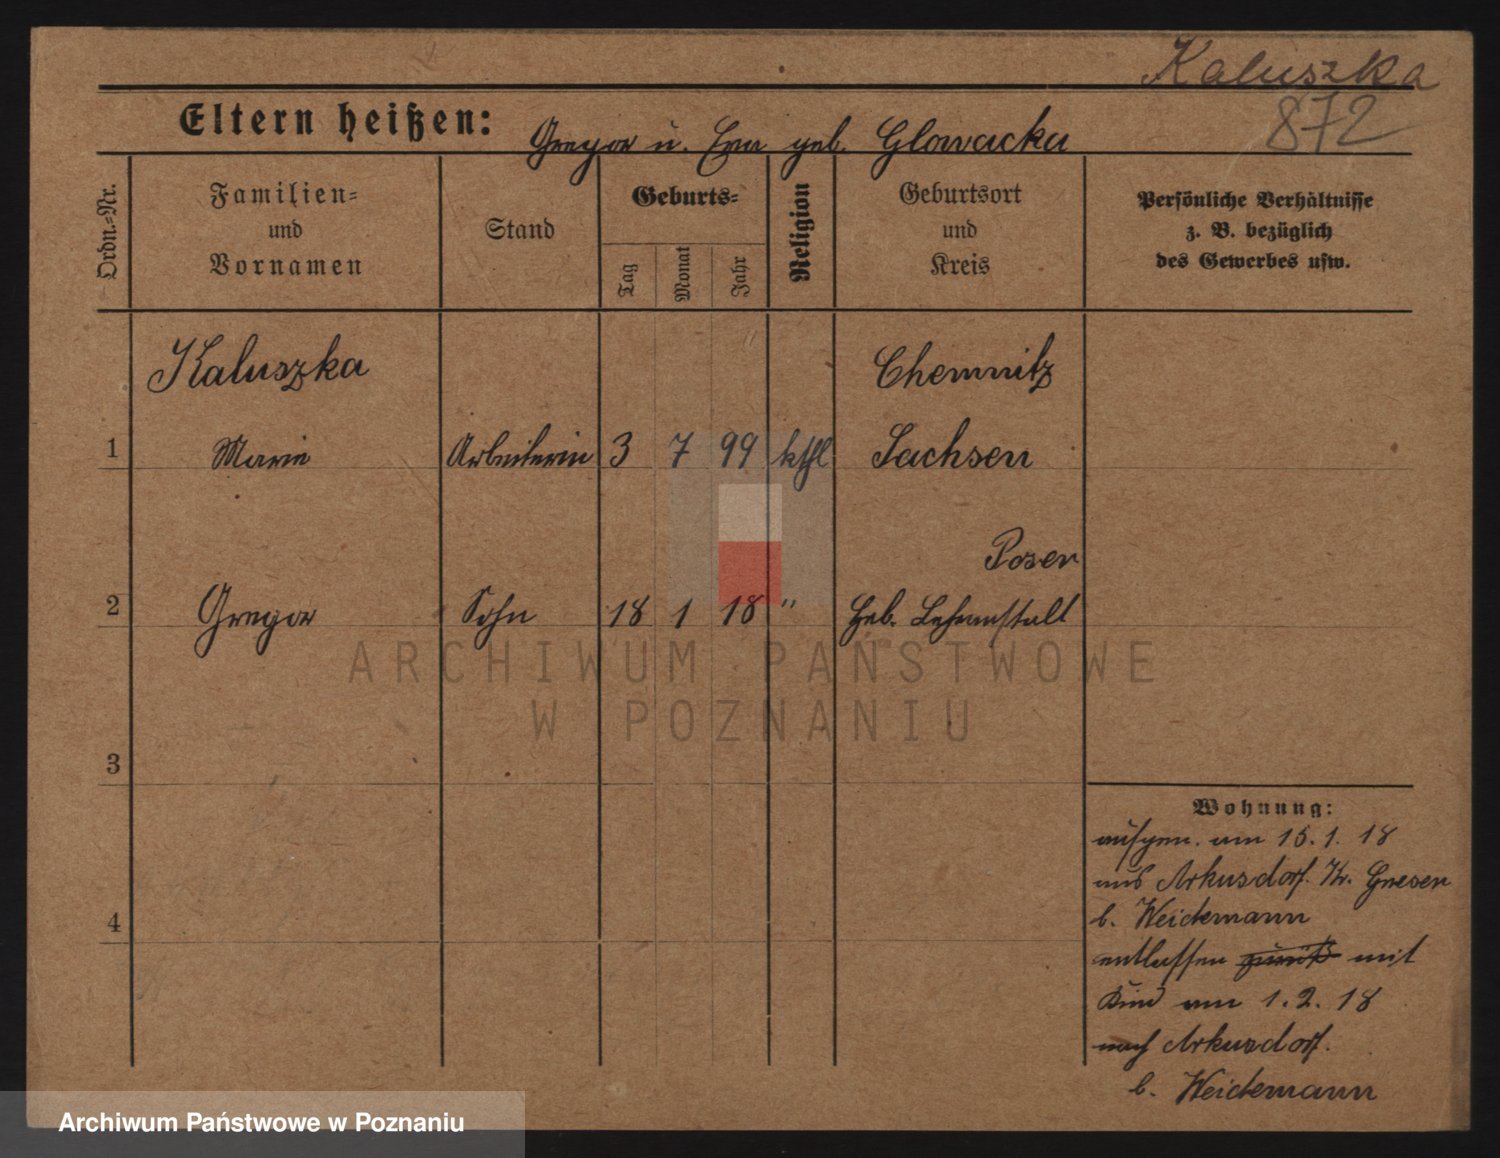 Kaluszka
872
Eltern heißen: Gregor u. Eva geb. Glowacka
Ordn.-Nr.
Familien-
und
Vornamen
Stand
Geburts-
Tag
Monat
Jahr
Religion
Geburtsort
und
Kreis
Persönliche Verhältnisse
z. B. bezüglich
des Gewerbes usw.
Kaluszka Chemnitz
1 Marie Arbeiterin 3 7 99 kthl Sachsen
Posen
2 Gregor Sohn 18 1 18 " Heb. Lehranstalt
ARCHIWUM PAŃSTWOWE
W POZNANIU
3
4
Wohnung:
aufgen. am 15.1.18
aus Arkusdorf. Kr. Gnesen
b. Weidemann
entlassen mit
Kind am 1.2.18
nach Arkusdorf.
b. Weidemann
Archiwum Państwowe w Poznaniu